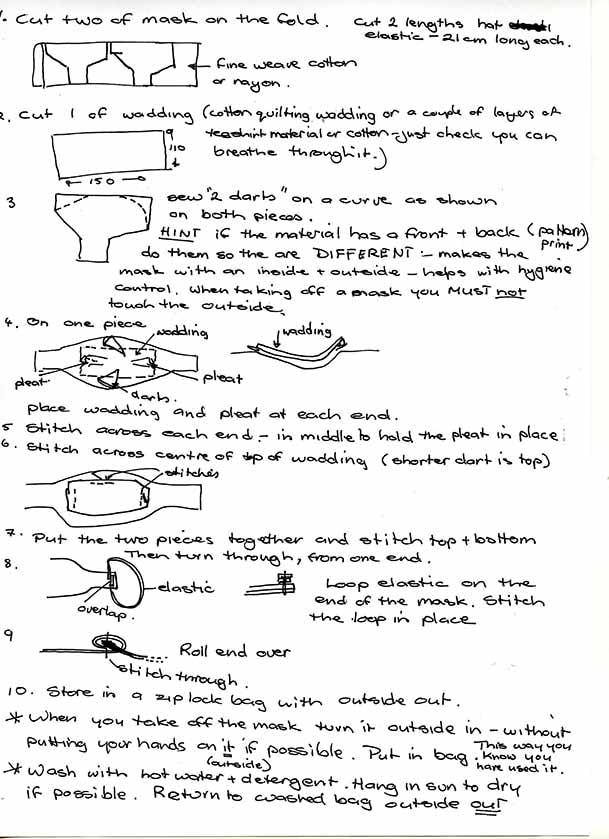 1. Cut two of mask on the fold. Cut 2 lengths hat
elastic - 21cm long each.
fine weave cotton
or rayon.
2. Cut 1 of wadding (cotton quilting wadding or a couple of layers of
teashirt material or cotton - just check you can
breathe through it.)
110
150
3 sew "2 darts" on a curve as shown
on both pieces.
HINT if the material has a front + back (pattern)
print
do them so the are DIFFERENT - makes the
mask with an inside + outside - helps with hygiene
control. When taking off a mask you MUST not
touch the outside.
4. On one piece
wadding
wadding
pleat
pleat
darts.
place wadding and pleat at each end.
5 Stitch across each end - in middle to hold the pleat in place.
6. Stitch across centre of top of wadding (shorter dart is top)
stitches
7. Put the two pieces together and stitch top + bottom
Then turn through, from one end.
8.
elastic
overlap.
Loop elastic on the
end of the mask. Stitch
the loop in place
9
Roll end over
stitch through.
10. Store in a zip lock bag with outside out.
* When you take off the mask turn it outside in - without
putting your hands on it if possible. Put in bag. This way you
know you
have used it.
(outside)
* Wash with hot water + detergent. Hang in sun to dry
if possible. Return to washed bag outside out